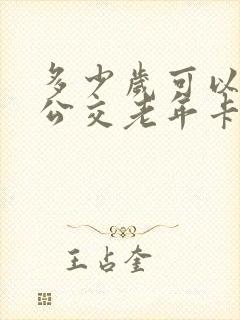 多少歲可以
公交老年卡
王占奎